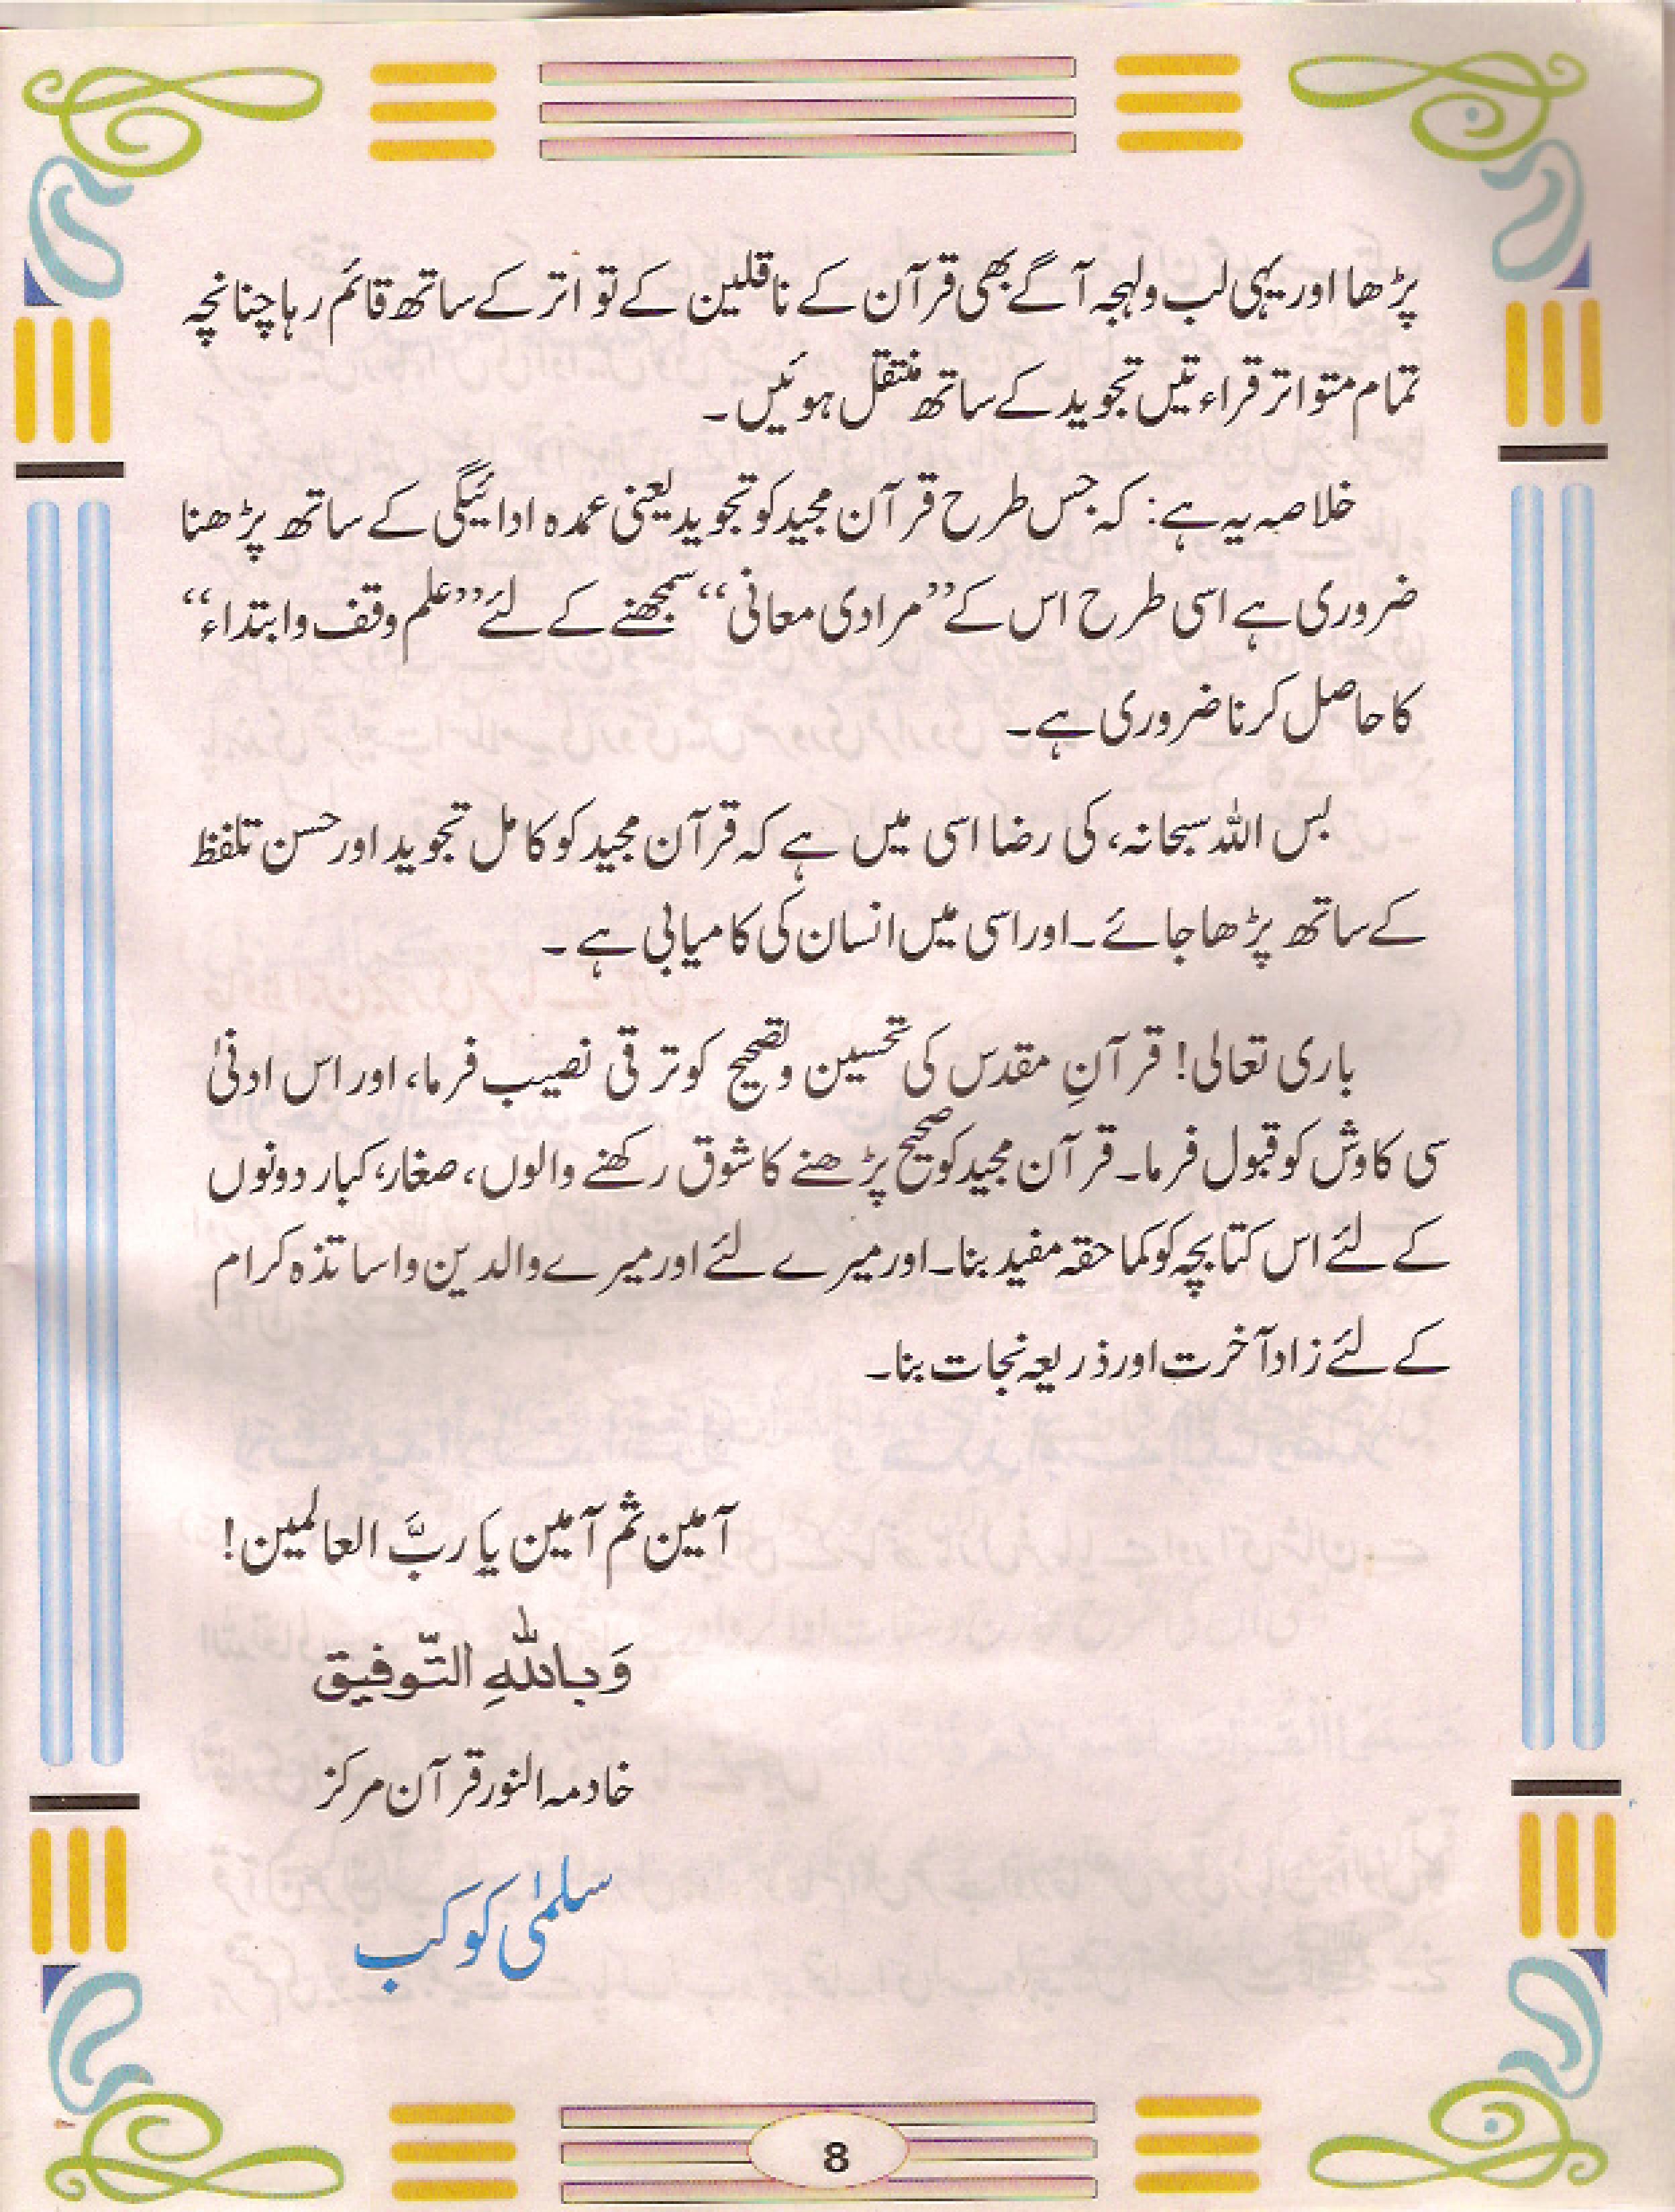 پڑھا اور یہی لب ولہجہ آگے بھی قرآن کے ناقلین کے تواتر کے ساتھ قائم رہا چنانچہ
تمام متواتر قراءتیں تجوید کے ساتھ منتقل ہوئیں۔
خلاصہ یہ ہے: کہ جس طرح قرآن مجید کو تجوید یعنی عمدہ ادائیگی کے ساتھ پڑھنا
ضروری ہے اسی طرح اس کے ”مرادی معانی“ سمجھنے کے لئے ”علم وقف وابتداء“
کا حاصل کرنا ضروری ہے۔
بس اللہ سبحانہ، کی رضا اسی میں ہے کہ قرآن مجید کو کامل تجوید اور حسن تلفظ
کے ساتھ پڑھا جائے۔ اور اسی میں انسان کی کامیابی ہے۔
باری تعالی! قرآنِ مقدس کی تحسین وتصحیح کو ترقی نصیب فرما، اور اس ادنیٰ
سی کاوش کو قبول فرما۔ قرآن مجید کو صحیح پڑھنے کا شوق رکھنے والوں، صغار، کبار دونوں
کے لئے اس کتابچہ کو کما حقہ مفید بنا۔ اور میرے لئے اور میرے والدین واساتذہ کرام
کے لئے زاد آخرت اور ذریعہ نجات بنا۔
آمین ثم آمین یا ربَّ العالمین!
وَباللّٰهِ التّوفيق
خادمہ النور قرآن مرکز
سلمیٰ کوکب
8